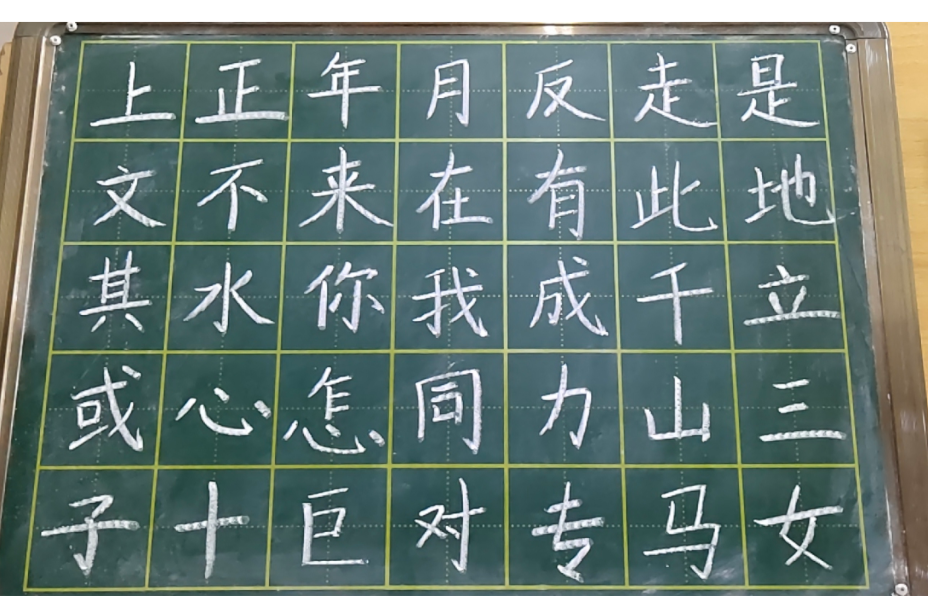 上正年月反走是
文不来在有此地
其水你我成千立
或心怎同力山三
子十巨对专马女